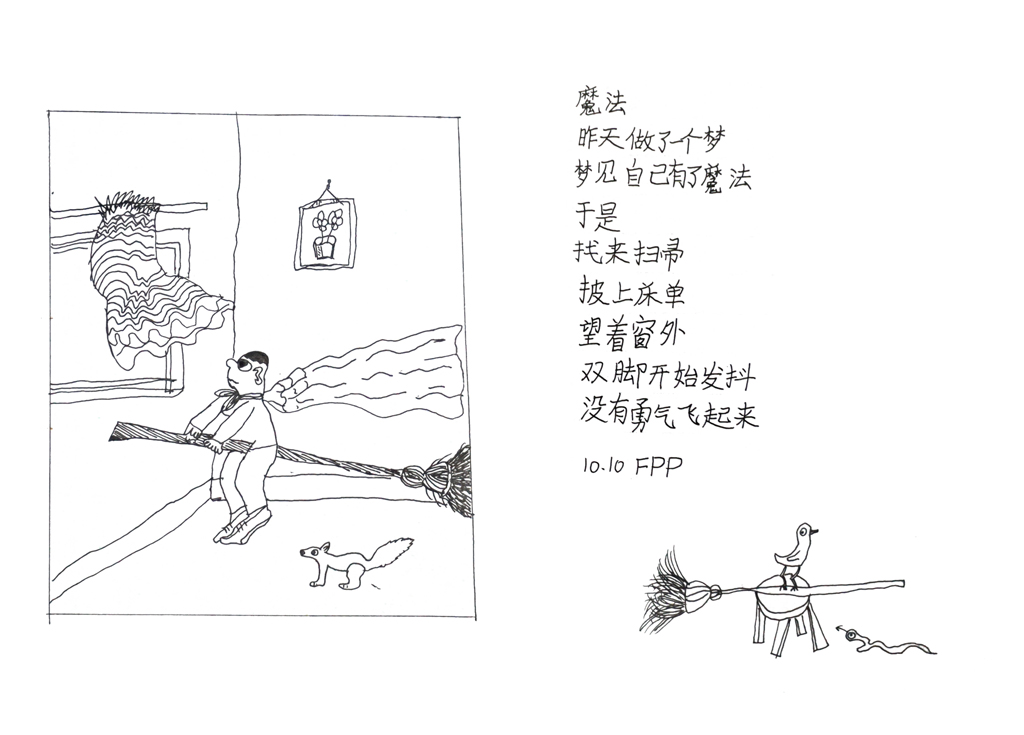 魔法
昨天做了一个梦
梦见自己有了魔法
于是
找来扫帚
披上床单
望着窗外
双脚开始发抖
没有勇气飞起来
10.10 FPP